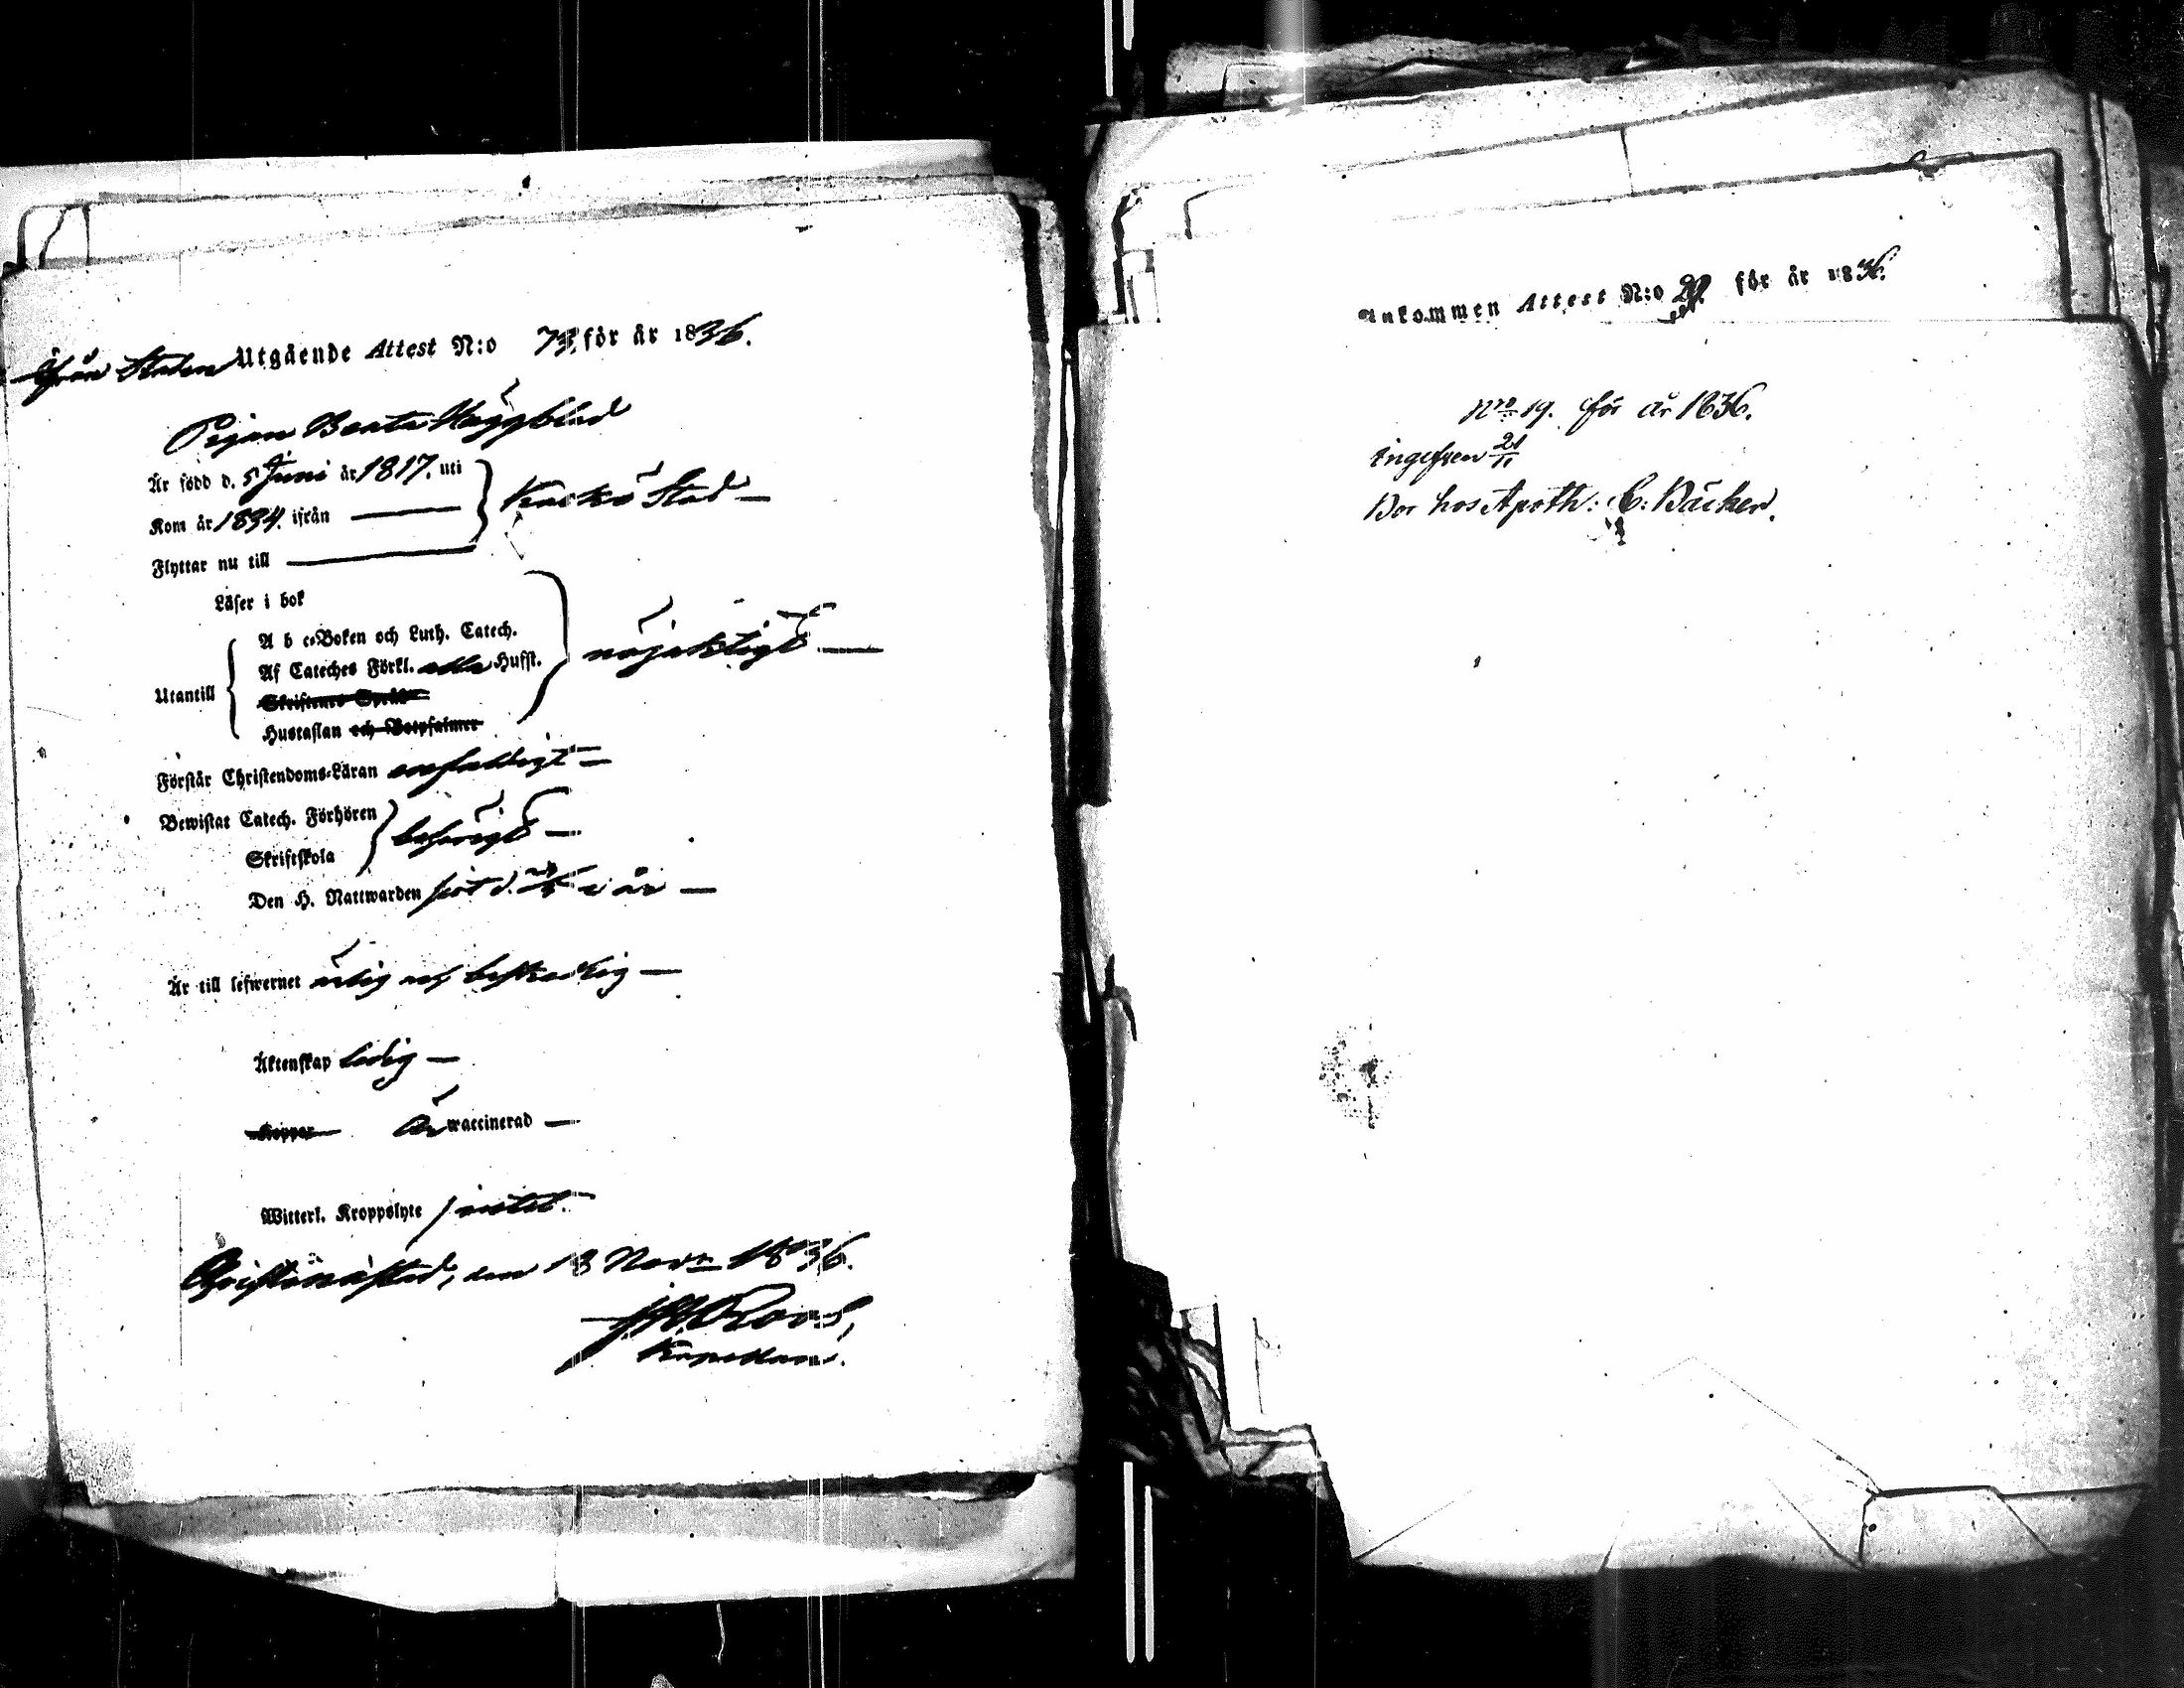 Ifrån Staden Utgående Attest N:o 73. för år 1836.
Pigan Beata Häggblad
Är född d. 5 Juni år 1817. uti
Kom år 1834. ifrån — Kaskö Stad —
Flyttar nu till —
Läser i bok
A b c-Boken och Luth. Catech.
Af Cateches Förkl. Hufst. nöjaktigt —
Utantill
Skriftenes Språk
Hustaflan och Botpsalmer
Förstår Christendoms-Läran enfaldigt —
Bewistat Catech. Förhören
Skriftskola behörigt —
Den H. Nattwarden sist d. i år —
Är till lefwernet ärlig och beskedlig —
Äktenskap ledig —
Koppor Är waccinerad —
Witterl. Kroppslyte intet.
Christinæstad, den 18 Novr 1836.
Roos,
Kapellan.
Ankommen Attest N:o 20. för år 1836.
Nro 19. för år 1836.
ingifven 21/11
Bor hos Apoth: C: Bäcker.